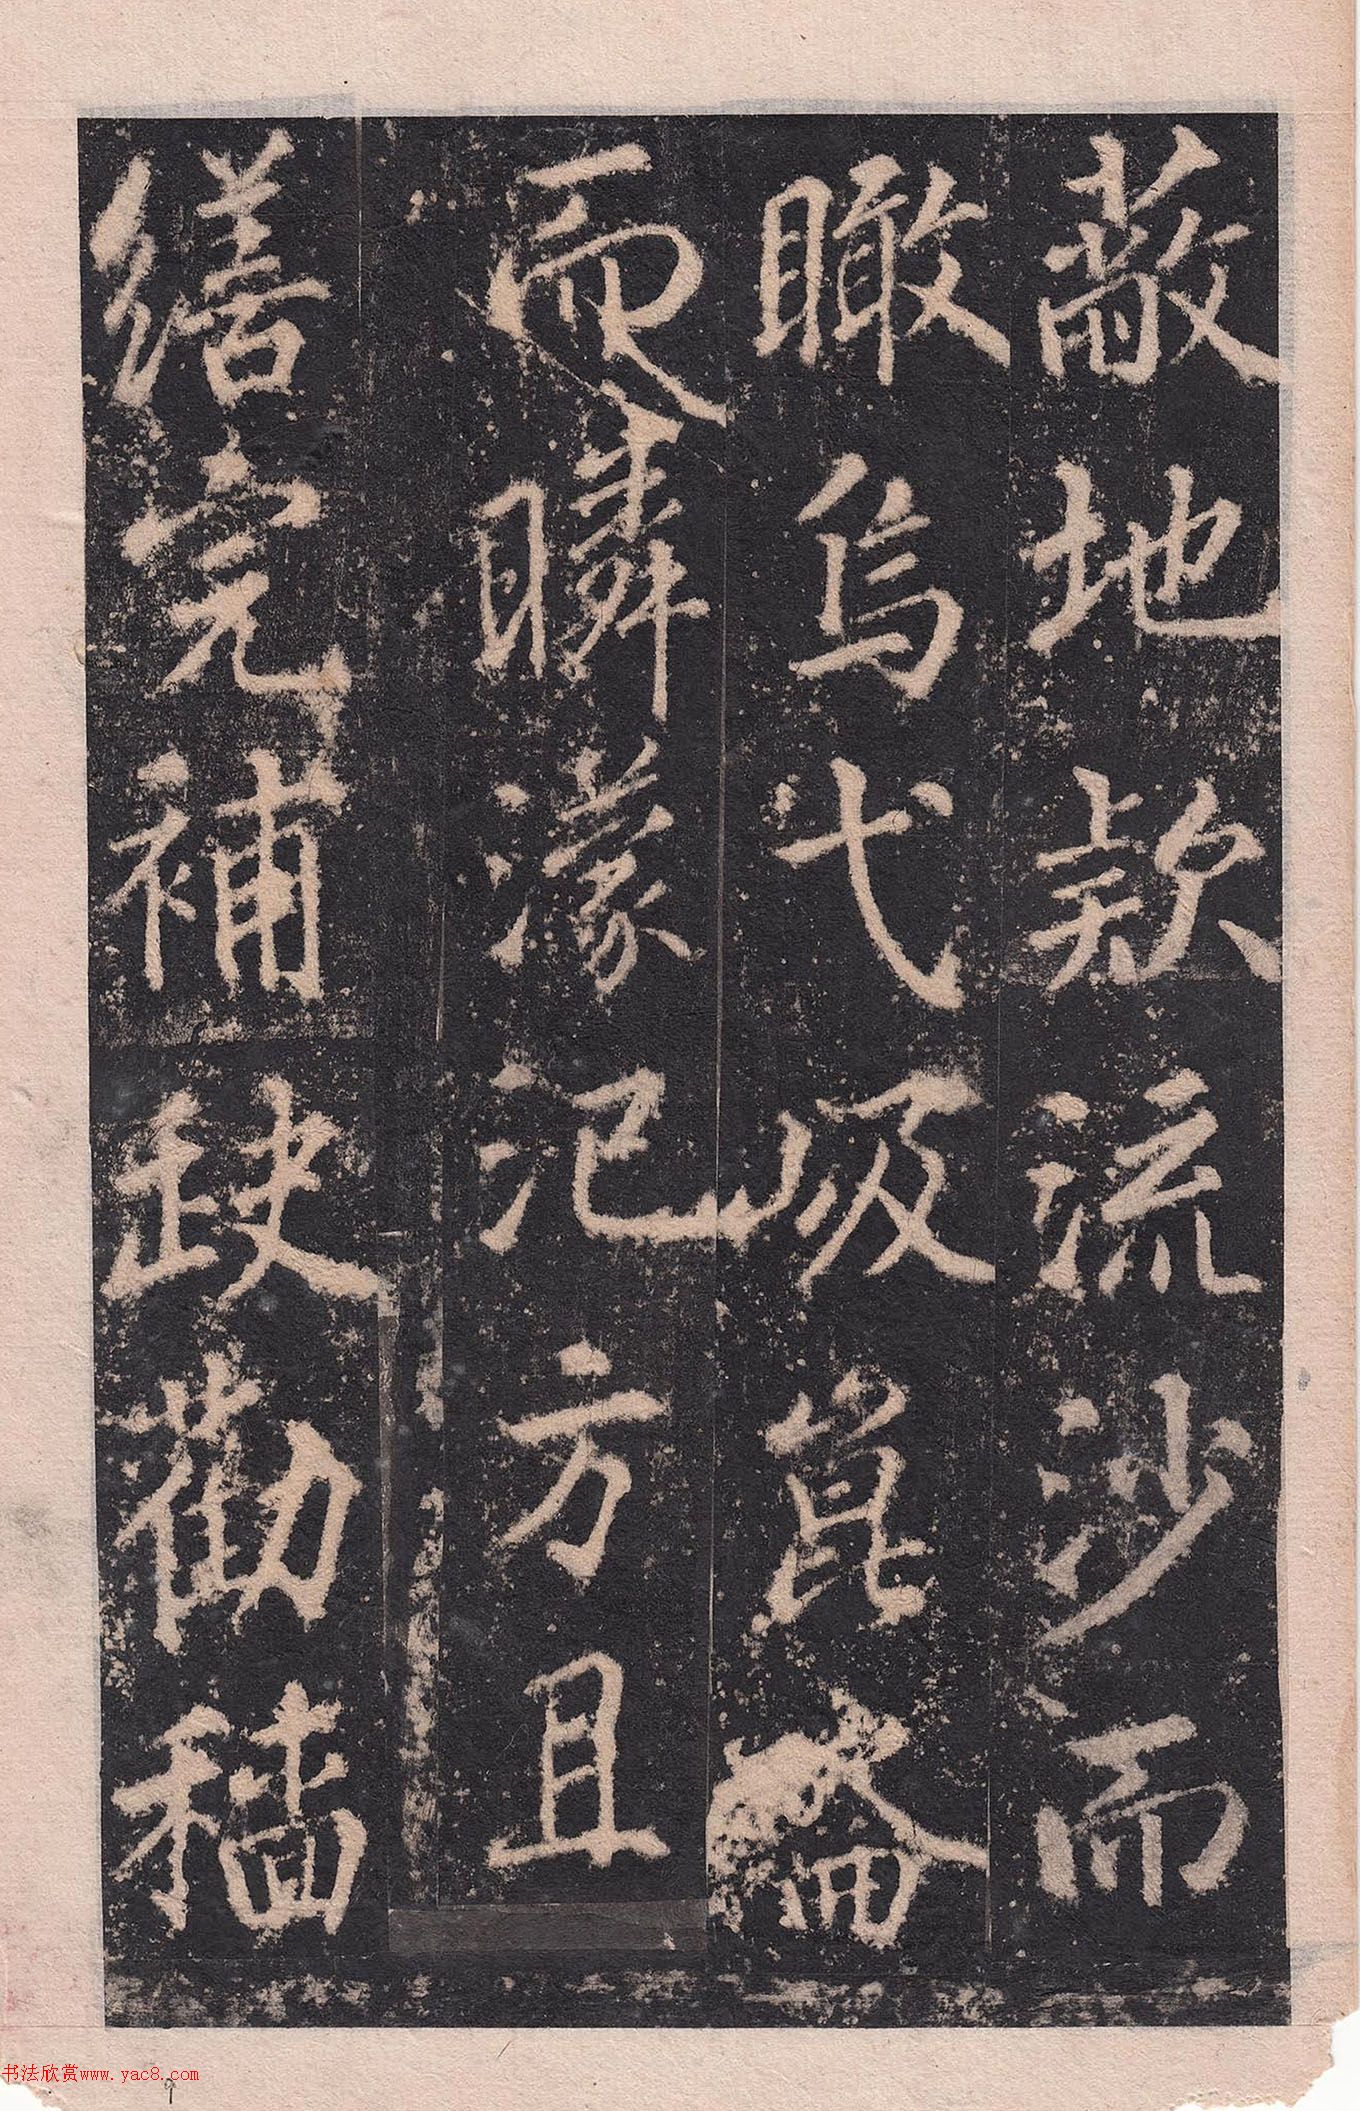 蔽地款流沙而
瞰烏弋扱崑崘
而瞵濛汜方且
繕完補缺勸穡
书法欣赏www.yac8.com